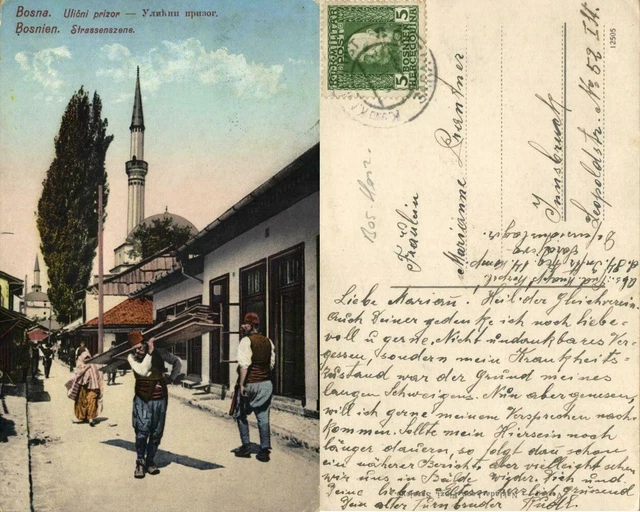 Bosna. Ulični prizor — Улични призор.
Bosnien. Strassenszene.
5 BOSNIEN HERCEGOVINA 5
12505
Bos Herz.
Fräulein
Marianne Prantner
Innsbruck
Leopoldstr. No 52 I. St.
Liebe Mariann! Heil der Gleichverein
Auch Deiner gedenke ich noch liebe-
voll u gerne. Nicht undankbares Ver-
gessen, sondern mein Krankheits-
zustand war der Grund meines
langen Schweigens. Nun aber genesen,
will ich gerne meinem Versprechen nach-
kommen. Sollte mein Hiersein noch
länger dauern, so folgt dann schon
ein näherer Bericht, aber vielleicht sehen
wir uns in Bälde wieder. Dich und
Deine lieben Eltern herzlich grüssend
Dein alter Turnbruder Rudl